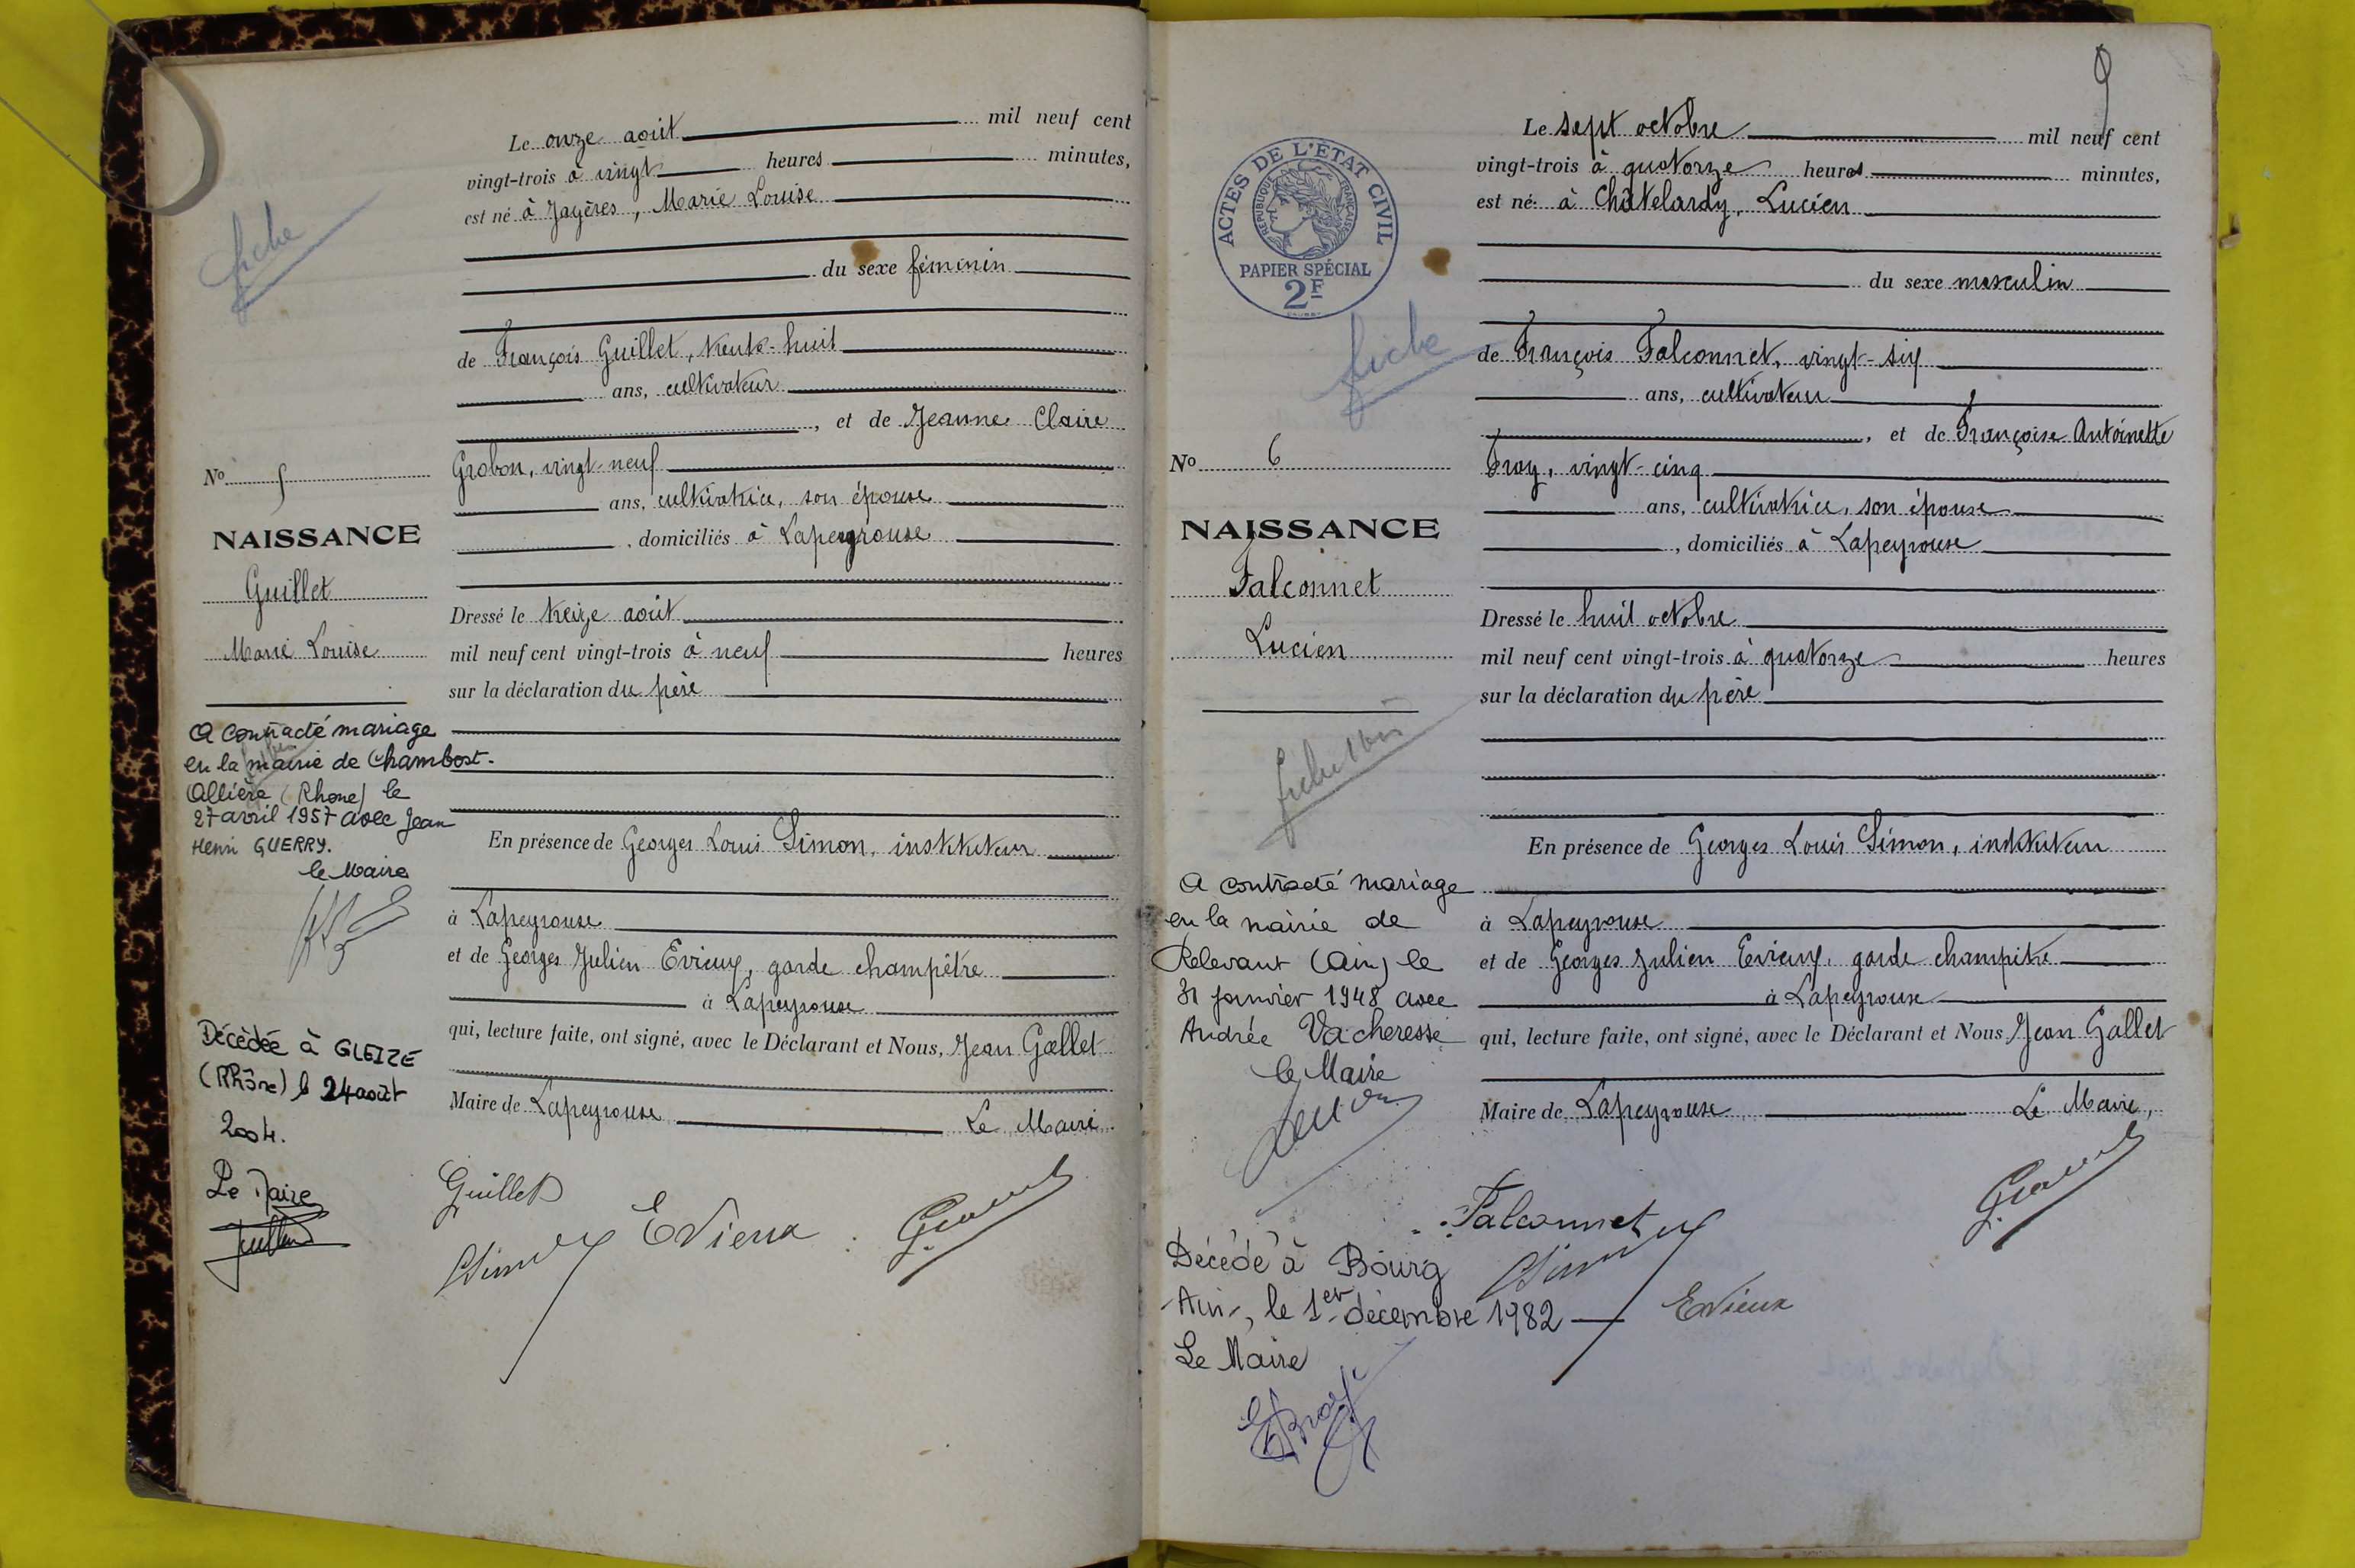 Le onze août mil neuf cent
vingt-trois à vingt heures minutes,
est né à Jayères, Marie Louise
du sexe féminin
fiche
de François Guillet, trente-huit
ans, cultivateur
, et de Jeanne Claire
Grobon, vingt-neuf
ans, cultivatrice, son épouse
, domiciliés à Lapeyrouse
No 5
NAISSANCE
Guillet
Marie Louise
Dressé le treize août
mil neuf cent vingt-trois à neuf heures
sur la déclaration du père
A contracté mariage
en la mairie de Chambost-
Allière (Rhone) le
27 avril 1957 avec Jean
Henri GUERRY.
le Maire
En présence de Georges Louis Simon, instituteur
à Lapeyrouse
et de Georges Julien Evieux, garde champêtre
à Lapeyrouse
qui, lecture faite, ont signé, avec le Déclarant et Nous, Jean Gallet
Maire de Lapeyrouse Le Maire
Décédée à GLEIZE
(Rhône) le 24 août
2004.
Le Maire
Guillet
Simon
Evieux
9
Le sept octobre mil neuf cent
vingt-trois à quatorze heures minutes,
est né à Châtelardy, Lucien
du sexe masculin
ACTES DE L'ÉTAT CIVIL
RÉPUBLIQUE FRANÇAISE
PAPIER SPÉCIAL
2F
fiche
de François Falconnet, vingt-six
ans, cultivateur
, et de Françoise Antoinette
Tray, vingt-cinq
ans, cultivatrice, son épouse
, domiciliés à Lapeyrouse
No 6
NAISSANCE
Falconnet
Lucien
Dressé le huit octobre
mil neuf cent vingt-trois à quatorze heures
sur la déclaration du père
En présence de Georges Louis Simon, instituteur
à Lapeyrouse
et de Georges Julien Evieux, garde champêtre
à Lapeyrouse
qui, lecture faite, ont signé, avec le Déclarant et Nous Jean Gallet
Maire de Lapeyrouse Le Maire,
A contracté mariage
en la mairie de
Relevant (Ain) le
31 janvier 1948 avec
Andrée Vacheresse
le Maire
Falconnet
Simon
Evieux
Décédé à Bourg
-Ain-, le 1er décembre 1982
Le Maire